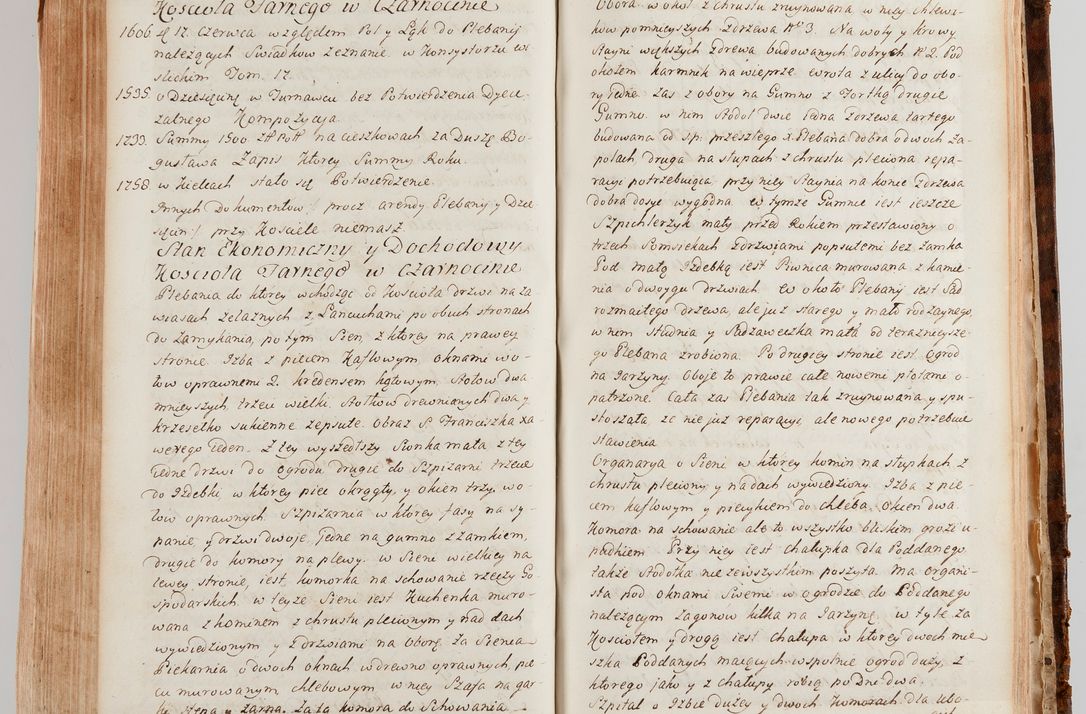 Kościoła Farnego w Czarnocinie
1606 d 17. Czerwca względem Pol y Łąk do Plebanij
należących Swiadkow zeznanie w Konsystorzu Wi-
slickim Tom. 17.
1535. o Dziesięcinę w Turnawcu bez Potwierdzenia Dyece-
zalnego Kompozycya.
1733. Summy 1500. złł Poll na Cieszkowach za Duszę Bo-
gusława Zapis Ktorey Summy Roku.
1758. w Kielcach stało się Potwierdzenie.
Innych Dokumentow /: procz arendy Plebanij y Dzie-
sięcin :/ przy Kosciele niemasz.
Stan Ekonomiczny y Dochodowy
Kościoła Farnego w Czarnocinie
Plebania do ktorey wchodząc od Kościoła drzwi na za-
wiasach żelaznych z Łancuchami po obuch stronach
do zamykania, potym Sien, z ktorey na prawey
stronie Izba z piecem Kaflowym oknami wo-
łow oprawnemi 2. kredensem kątowym, Stołow dwa
mnieyszych, trzeci wielki, Stołkow drewnianych dwa y
krzesełko sukienne zepsute. Obraz S Franciszka Xa-
werego ieden. Z tey wyszedłszy Sionka mała z tey
iedne drzwi do ogrodu drugie do Szpiżarni trzecie
do Izdebki, w ktorey piec okrągły, y okien trzy, wo-
łow oprawnych. Szpiżarnia w ktorey fasy na sy-
panie, y drzwi dwoje, jedne na gumno z zamkiem,
drugie do komory na plewy. w Sieni wielkiey na
lewey stronie, iest komorka na schowanie rzeczy Go-
spodarskich, w teyże Sieni iest Kuchenka muro-
wana z kominem z chrustu plecionym y nad dach
wywiedzionym y zdrzwiami na Oborę. Za Sienią
Piekarnia o dwoch oknach w drewno oprawnych, pie-
cu murowanym, chlebowym. w niey Szafa na gar-
ki, stępa y żarna. Za tą komora do Schowania
Obora w okoł z chrustu zruynowana w niey chlewi-
kow pomnieyszych zdrzewa N° 3. Na woły y krowy
Stayni większych zdrewa budowanych dobrych N 2. Pod
okołem karmnik na wieprze wrota z ulicy do obo-
ry iedne. zas z obory na Gumno z Fortką drugie
Gumno. w nim Stodoł dwie Iedna zdrzewa tartego
budowana od sp. przeszłego X. Plebana dobra o dwoch Za-
polach druga na słupach z chrustu pleciona repa-
racyi potrzebuiąca. przy niey Staynia na konie zdrzewa
dobra dosyc wygodna. w tymże Gumnie iest ieszcze
Szpichlerzyk mały przed Rokiem przestawiony o
trzech Somsiekach zdrzwiami popsutemi bez zamka.
Pod małą Izdebką iest Piwnica murowana z kamie-
nia o dwoygu drzwiach. W około Plebanij iest Sad
rozmaitego drzewa, ale już starego y mało rodzaynego.
w nim studnia y Sadzaweczka mała od teraznieysze-
go Plebana zrobiona. Po drugiey stronie iest Ogrod
na Jarzyny. Oboje to prawie całe nowemi płotami o-
patrzone. Cała zas Plebania tak zruynowana y spu-
stoszała, że nie już reparacyi, ale nowego potrzebuie
stawienia.
Organarya o Sieni w ktorey komin na słupkach z
chrustu pleciony y nadach wywiedziony. Izba z pie-
cem kaflowym y piecykiem do chleba, Okien dwa.
Komora na schowanie ale to wszystko bliskim grozi u-
padkiem. Przy niey iest chałupka dla Poddanego
także Stodołka nie ze wszystkim poszyta. Ma Organi-
sta pod oknami Swemi w ogrodzie do Poddanego
należącym Zagonow kilka na Jarzynę, w tyle za
Kosciołem y drogą iest chałupa w ktorey dwoch mie-
szka Poddanych maiących wspolnie ogrod duży, z
ktorego jako y z chałupy robią po Dni dwa.
Szpital o Izbie dużey y dwoch Komorach dla ubo-